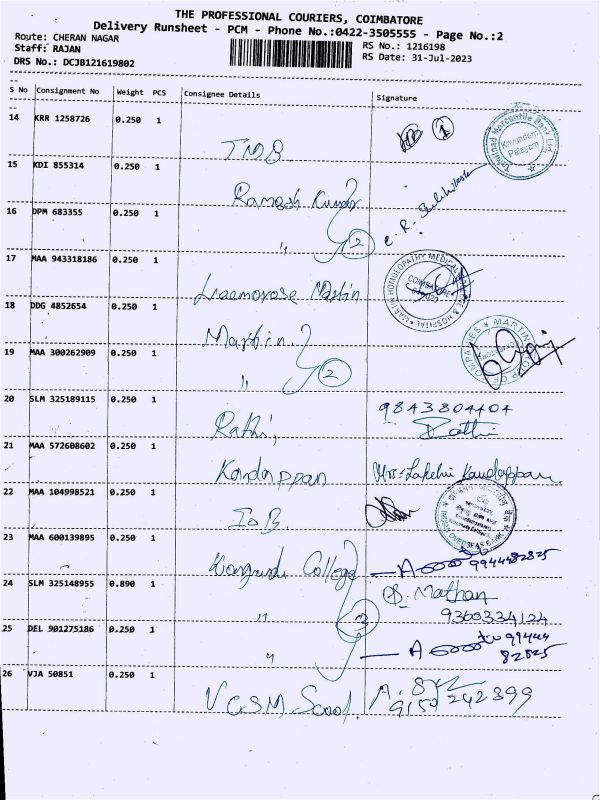 THE PROFESSIONAL COURIERS, COIMBATORE
Delivery Runsheet - PCM - Phone No.:0422-3505555 - Page No.:2
Route: CHERAN NAGAR
RS No.: 1216198
Staff: RAJAN
RS Date: 31-Jul-2023
DRS No.: DCJB121619802
S No Consignment No Weight PCS Consignee Details Signature
14 KRR 1258726 0.250 1
TMB
Tamilnad Mercantile Bank Ltd.
Kavundam Palayam
15 KDI 855314 0.250 1
Ramesh Kumar
16 DPM 683355 0.250 1
" 2
17 MAA 943318186 0.250 1
Martin
MARTIN HOMOEOPATHY MEDICAL COLLEGE & HOSPITAL
COIMBATORE
18 DDG 4852654 0.250 1
Martin
MARTIN GROUP OF COMPANIES
19 MAA 300262909 0.250 1
" 2
20 SLM 325189115 0.250 1
9843804404
Rathi, Rathi
21 MAA 572608602 0.250 1
Kandappan Mrs. Lakshmi Kandappan
22 MAA 104998521 0.250 1
IOB.
23 MAA 600139895 0.250 1
College 9944482825
24 SLM 325148955 0.890 1
S. Mathan
" 3 9360334124
25 DEL 901275186 0.250 1
" 99444
82825
26 VJA 50851 0.250 1
9159242399